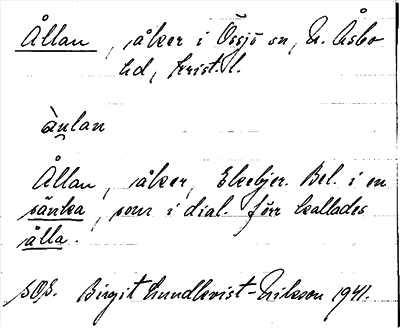 Ållan, åker i Össjö sn, N. Åsbo
hd, Krist. l.
ån̯lan
Ållan, åker, Ekebjer. Bel. i en
sänka, som i dial. förr kallades
ålla.
SOS. Birgit Lundkvist-Erikson 1941.